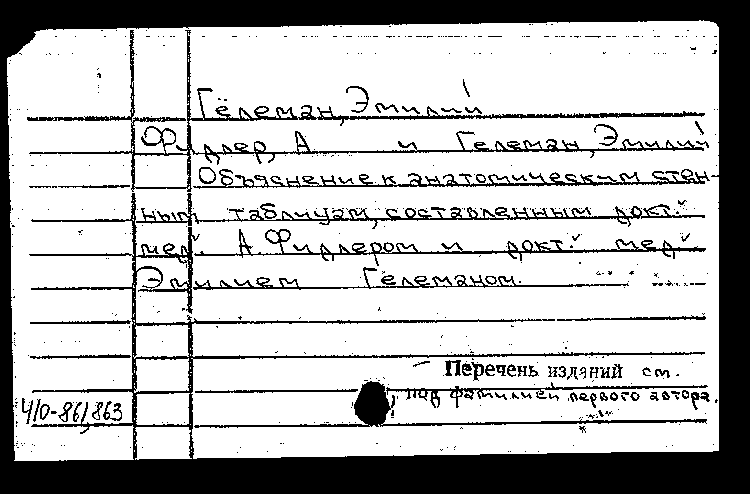 Гёлеман, Эмилий
Фидлер, А и Гелеман, Эмилий
Объяснение к анатомическим стен-
ным таблицам, составленным докт.
мед. А. Фидлером и докт. мед.
Эмилием Гёлеманом.
Перечень изданий см.
под фамилией первого автора.
Ч/0-86/863